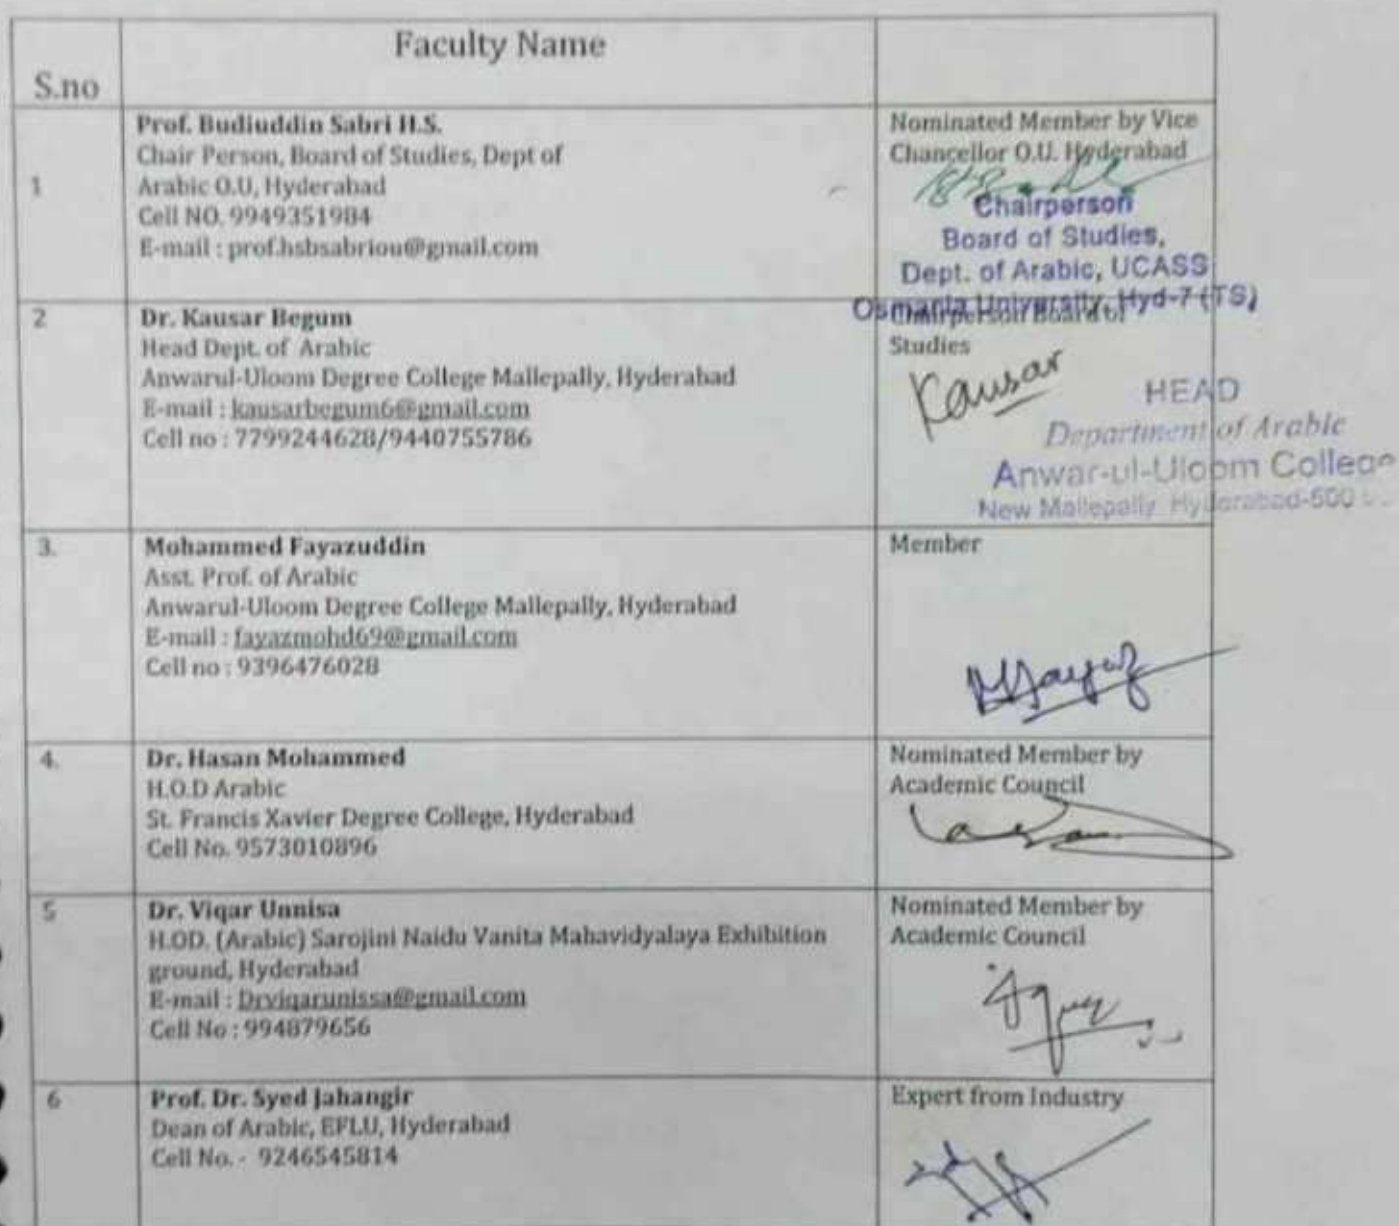 Faculty Name
S.no
1
Prof. Budiuddin Sabri H.S.
Chair Person, Board of Studies, Dept of
Arabic O.U, Hyderabad
Cell NO. 9949351984
E-mail : prof.hsbsabriou@gmail.com
Nominated Member by Vice
Chancellor O.U. Hyderabad
Chairperson
Board of Studies,
Dept. of Arabic, UCASS
Osmania University, Hyd-7 (TS)
2
Dr. Kausar Begum
Head Dept. of Arabic
Anwarul-Uloom Degree College Mallepally, Hyderabad
E-mail : kausarbegum6@gmail.com
Cell no : 7799244628/9440755786
Chairperson Board of
Studies
Kausar
HEAD
Department of Arabic
Anwar-ul-Uloom College
New Mallepally, Hyderabad-500
3.
Mohammed Fayazuddin
Asst. Prof. of Arabic
Anwarul-Uloom Degree College Mallepally, Hyderabad
E-mail : fayazmohd69@gmail.com
Cell no : 9396476028
Member
4.
Dr. Hasan Mohammed
H.O.D Arabic
St. Francis Xavier Degree College, Hyderabad
Cell No. 9573010896
Nominated Member by
Academic Council
5
Dr. Viqar Unnisa
H.OD. (Arabic) Sarojini Naidu Vanita Mahavidyalaya Exhibition
ground, Hyderabad
E-mail : Drviqarunissa@gmail.com
Cell No : 994879656
Nominated Member by
Academic Council
6
Prof. Dr. Syed Jahangir
Dean of Arabic, EFLU, Hyderabad
Cell No. - 9246545814
Expert from Industry